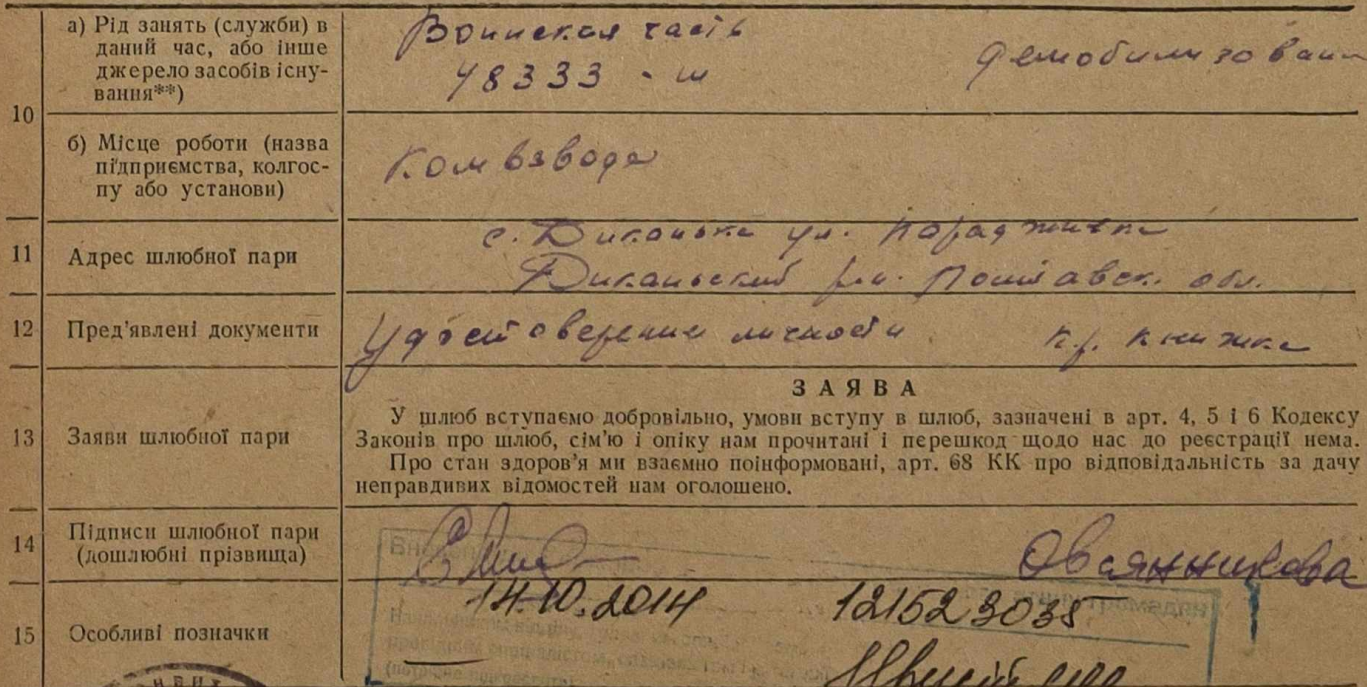 10
а) Рід занять (служби) в
даний час, або інше
джерело засобів існу-
вання**)
Воинская часть
48333 - ш
демобилизован
б) Місце роботи (назва
підприємства, колгос-
пу або установи)
Комвзвода
11
Адрес шлюбної пари
с. Диканька ул.
Диканьский р-н. Полтавск. обл.
12
Пред'явлені документи
Удостоверение личности
кр. книжка
13
Заяви шлюбної пари
ЗАЯВА
У шлюб вступаємо добровільно, умови вступу в шлюб, зазначені в арт. 4, 5 і 6 Кодексу
Законів про шлюб, сім'ю і опіку нам прочитані і перешкод щодо нас до реєстрації нема.
Про стан здоров'я ми взаємно поінформовані, арт. 68 КК про відповідальність за дачу
неправдивих відомостей нам оголошено.
14
Підписи шлюбної пари
(дошлюбні прізвища)
Овсянникова
15
Особливі позначки
14.10.2014
121523035